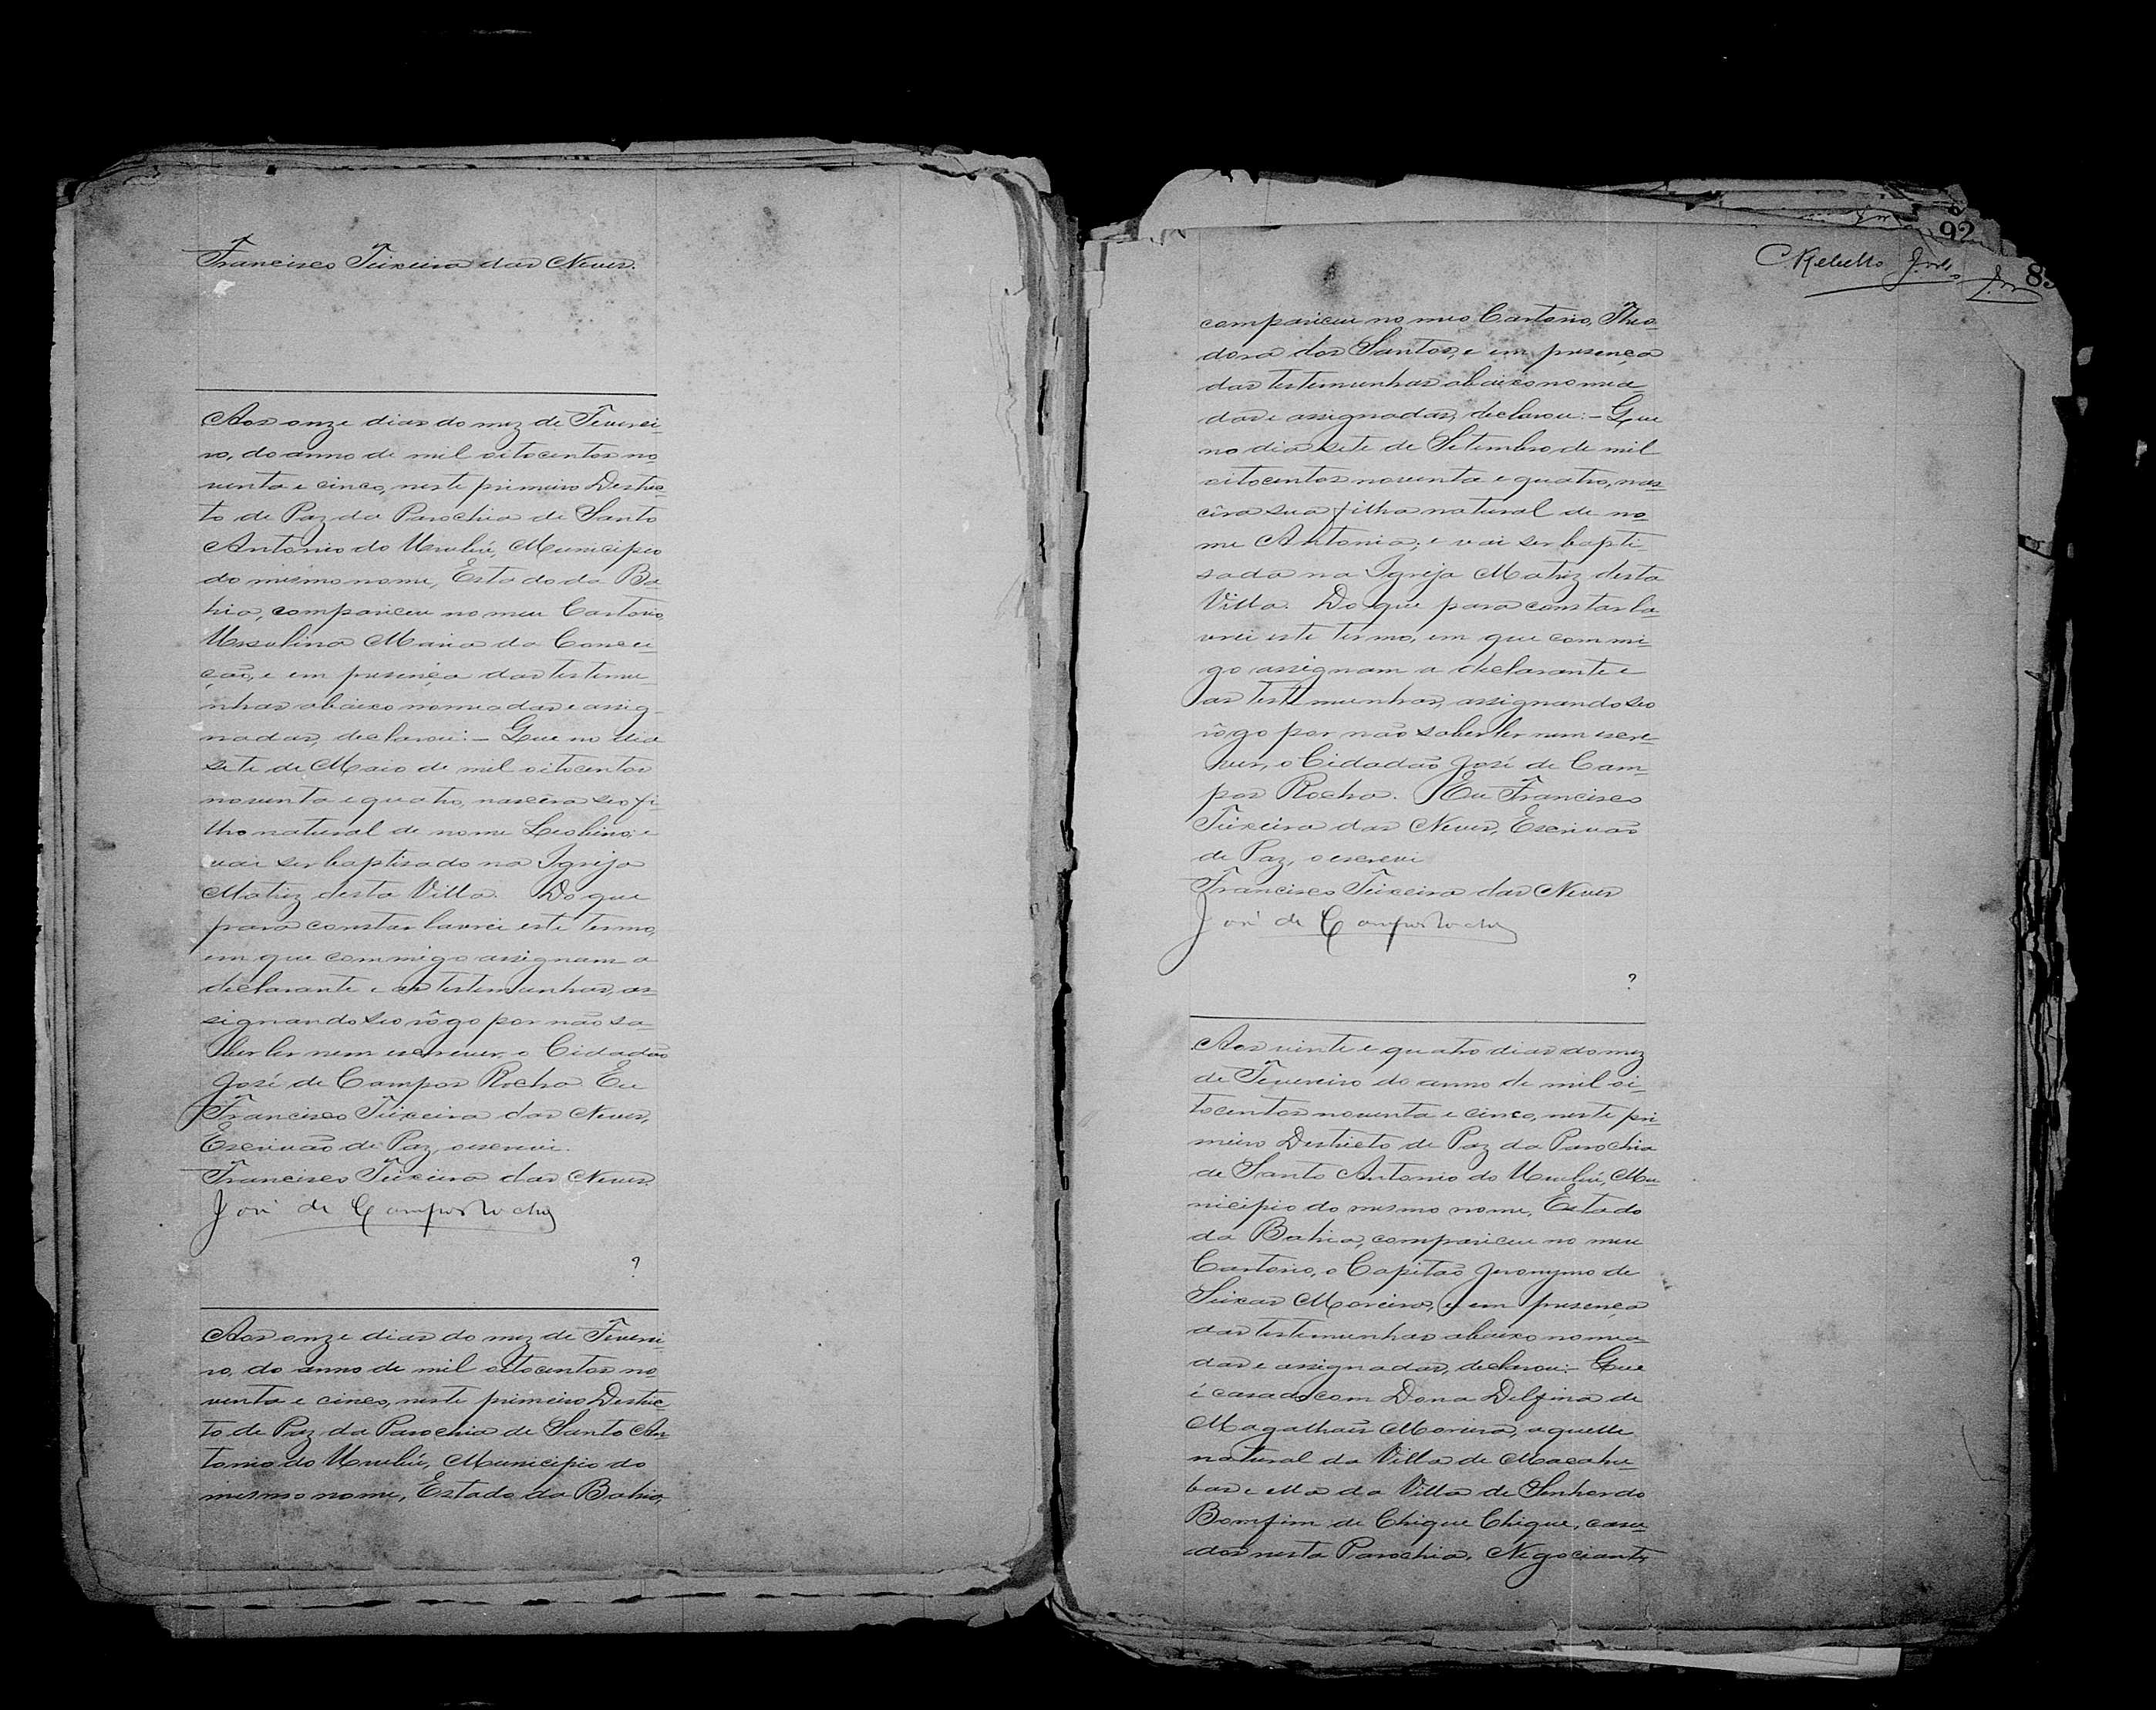 Francisco Teixeira das Neves.
Aos onze dias do mez de Feverei-
ro, do anno de mil oitocentos no-
venta e cinco, neste primeiro Destric-
to de Paz da Parochia de Santo
Antonio do Urubú, Municipio
do mesmo nome, Estado da Ba-
hia, compareceu no meu Cartorio,
Ursulina Maria da Concei-
ção, e em presença das testemu-
nhas abaixo nomeadas e assig-
nadas, declarou: - Que no dia
sete de Maio de mil oitocentos
noventa e quatro, nascêra seo fi-
lho natural de nome Leobino; e
vai ser baptisado na Igreja
Matriz desta Villa. Do que
para constar lavrei este termo,
em que commigo assignam a
declarante e as testemunhas, as-
signando seo rôgo por não sa-
ber ler nem escrever, o Cidadão
José de Campos Rocha. Eu
Francisco Teixeira das Neves,
Escrivão de Paz, o escrevi.
Francisco Teixeira das Neves.
José de Campos Rocha
?
Aos onze dias do mez de Feverei-
ro, do anno de mil oitocentos no-
venta e cinco, neste primeiro Destric-
to de Paz da Parochia de Santo An-
tonio do Urubú, Municipio do
mesmo nome, Estado da Bahia,
92
Rebello
8
compareceu no meo Cartorio, Theo-
dora dos Santos, e em presença
das testemunhas abaixo nomea-
das e assignadas, declarou: - Que
no dia sete de Setembro de mil
oitocentos noventa e quatro, nas-
cêra sua filha natural de no-
me Antonia; e vai ser bapti-
sada na Igreja Matriz desta
Villa. Do que para constar la-
vrei este termo, em que commi-
go assignam a declarante e
as testemunhas, assignando seo
rôgo por não saber ler nem escre-
ver, o Cidadão José de Cam-
pos Rocha. Eu Francisco
Teixeira das Neves, Escrivão
de Paz, o escrevi
Francisco Teixeira das Neves
José de Campos Rocha
?
Aos vinte e quatro dias do mez
de Fevereiro do anno de mil oi-
tocentos noventa e cinco, neste pri-
meiro Destricto de Paz da Parochia
de Santo Antonio do Urubú, Mu-
nicipio do mesmo nome, Estado
da Bahia, compareceu no meu
Cartorio, o Capitão Jeronymo de
Seixas Moreira, e em presença
das testemunhas abaixo nomea-
das e assignadas, declarou: - Que
é casado com Dona Delfina de
Magalhães Moreira, aquelle
natural da Villa de Macahu-
bas e ella da Villa de Senhor do
Bomfim de Chique Chique, casa-
dos nesta Parochia, Negociante,